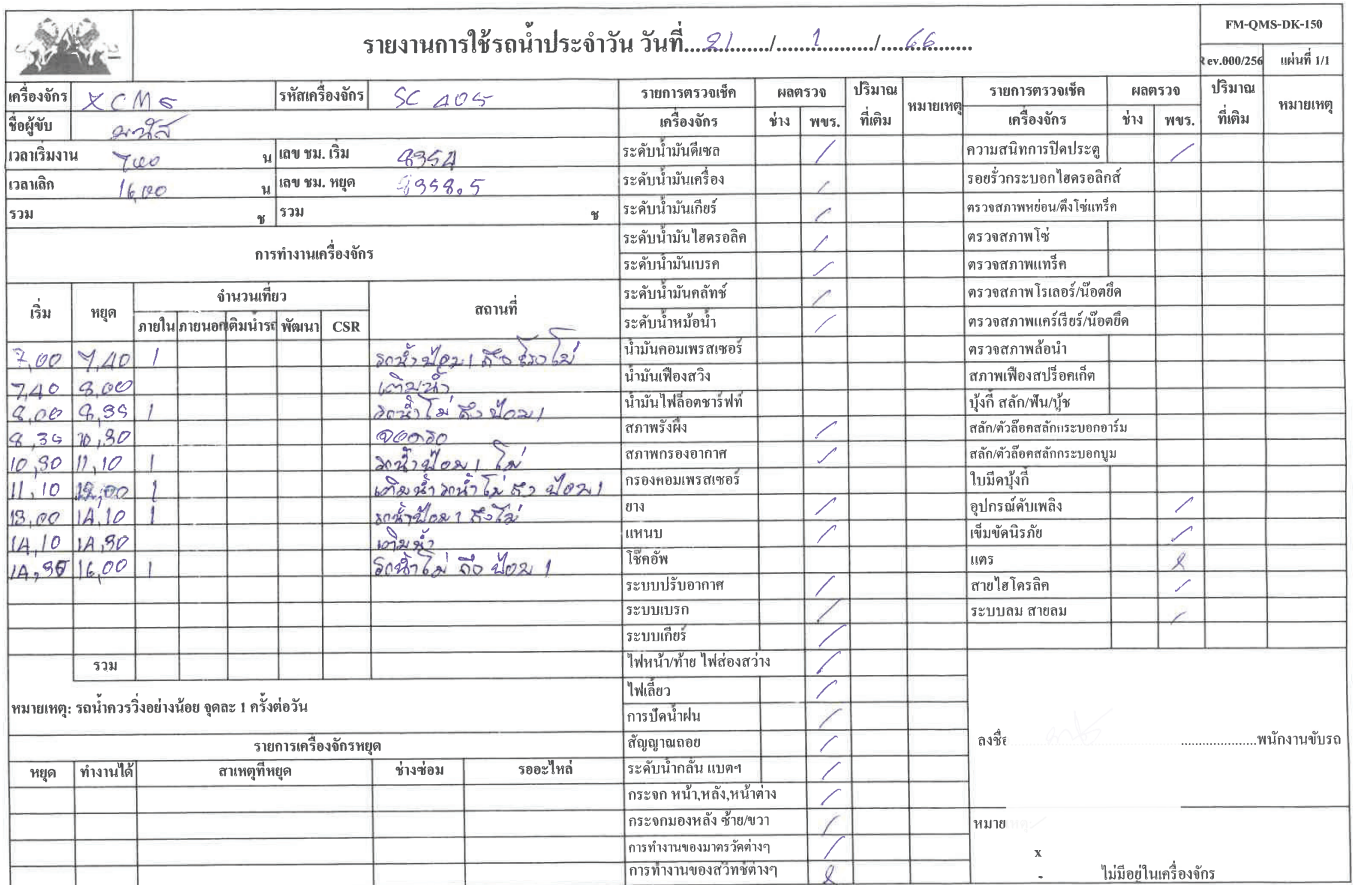 รายงานการใช้รถน้ำประจำวัน วันที่....21......./.......1........../....66........
FM-QMS-DK-150
Rev.000/256 แผ่นที่ 1/1
เครื่องจักร XCMG รหัสเครื่องจักร SC 405
ชื่อผู้ขับ มนัส
เวลาเริ่มงาน 7.00 น เลข ชม. เริ่ม 8354
เวลาเลิก 16,00 น เลข ชม. หยุด 8358.5
รวม ช รวม ช
การทำงานเครื่องจักร
เริ่ม หยุด จำนวนเที่ยว สถานที่
ภายใน ภายนอก เติมน้ำรถ พัฒนา CSR
7,00 7,40 1 รดน้ำป้อม 1 ถึง โรงโม่
7,40 8,00 เติมน้ำ
8,00 8,35 1 รดน้ำโม่ ถึง ป้อม 1
8,35 10,30 จอดรอ
10,30 11,10 1 รดน้ำป้อม 1 โม่
11,10 12,00 1 เติมน้ำ รดน้ำโม่ ถึง ป้อม 1
13,00 14,10 1 รดน้ำป้อม 1 ถึงโม่
14,10 14,30 เติมน้ำ
14,35 16,00 1 รดน้ำโม่ ถึง ป้อม 1
รวม
หมายเหตุ: รถน้ำควรวิ่งอย่างน้อย จุดละ 1 ครั้งต่อวัน
รายการเครื่องจักรหยุด
หยุด ทำงานได้ สาเหตุที่หยุด ช่างซ่อม รออะไหล่
รายการตรวจเช็ค ผลตรวจ ปริมาณ หมายเหตุ
เครื่องจักร ช่าง พขร. ที่เติม
ระดับน้ำมันดีเซล /
ระดับน้ำมันเครื่อง /
ระดับน้ำมันเกียร์ /
ระดับน้ำมันไฮดรอลิค /
ระดับน้ำมันเบรค /
ระดับน้ำมันคลัทช์ /
ระดับน้ำหม้อน้ำ /
น้ำมันคอมเพรสเซอร์
น้ำมันเฟืองสวิง
น้ำมันไพล็อตชาร์ฟท์
สภาพรังผึ้ง /
สภาพกรองอากาศ /
กรองคอมเพรสเซอร์
ยาง /
แหนบ /
โช๊คอัพ
ระบบปรับอากาศ /
ระบบเบรก /
ระบบเกียร์ /
ไฟหน้า/ท้าย ไฟส่องสว่าง /
ไฟเลี้ยว /
การปัดน้ำฝน /
สัญญาณถอย /
ระดับน้ำกลั่น แบตฯ /
กระจก หน้า,หลัง,หน้าต่าง /
กระจกมองหลัง ซ้าย/ขวา /
การทำงานของมาตรวัดต่างๆ /
การทำงานของสวิทช์ต่างๆ
รายการตรวจเช็ค ผลตรวจ ปริมาณ หมายเหตุ
เครื่องจักร ช่าง พขร. ที่เติม
ความสนิทการปิดประตู /
รอยรั่วกระบอกไฮดรอลิกส์
ตรวจสภาพหย่อน/ตึงโซ่แทร็ค
ตรวจสภาพโซ่
ตรวจสภาพแทร็ค
ตรวจสภาพโรเลอร์/น๊อตยึด
ตรวจสภาพแคร์เรียร์/น๊อตยึด
ตรวจสภาพล้อนำ
สภาพเฟืองสปร็อคเก็ต
บุ้งกี๋ สลัก/ฟัน/บู้ช
สลัก/ตัวล๊อคสลักกระบอกอาร์ม
สลัก/ตัวล๊อคสลักกระบอกบูม
ใบมีดบุ้งกี๋
อุปกรณ์ดับเพลิง /
เข็มขัดนิรภัย /
แตร
สายไฮโดรลิค /
ระบบลม สายลม /
ลงชื่อ .....................พนักงานขับรถ
หมาย
x
- ไม่มีอยู่ในเครื่องจักร